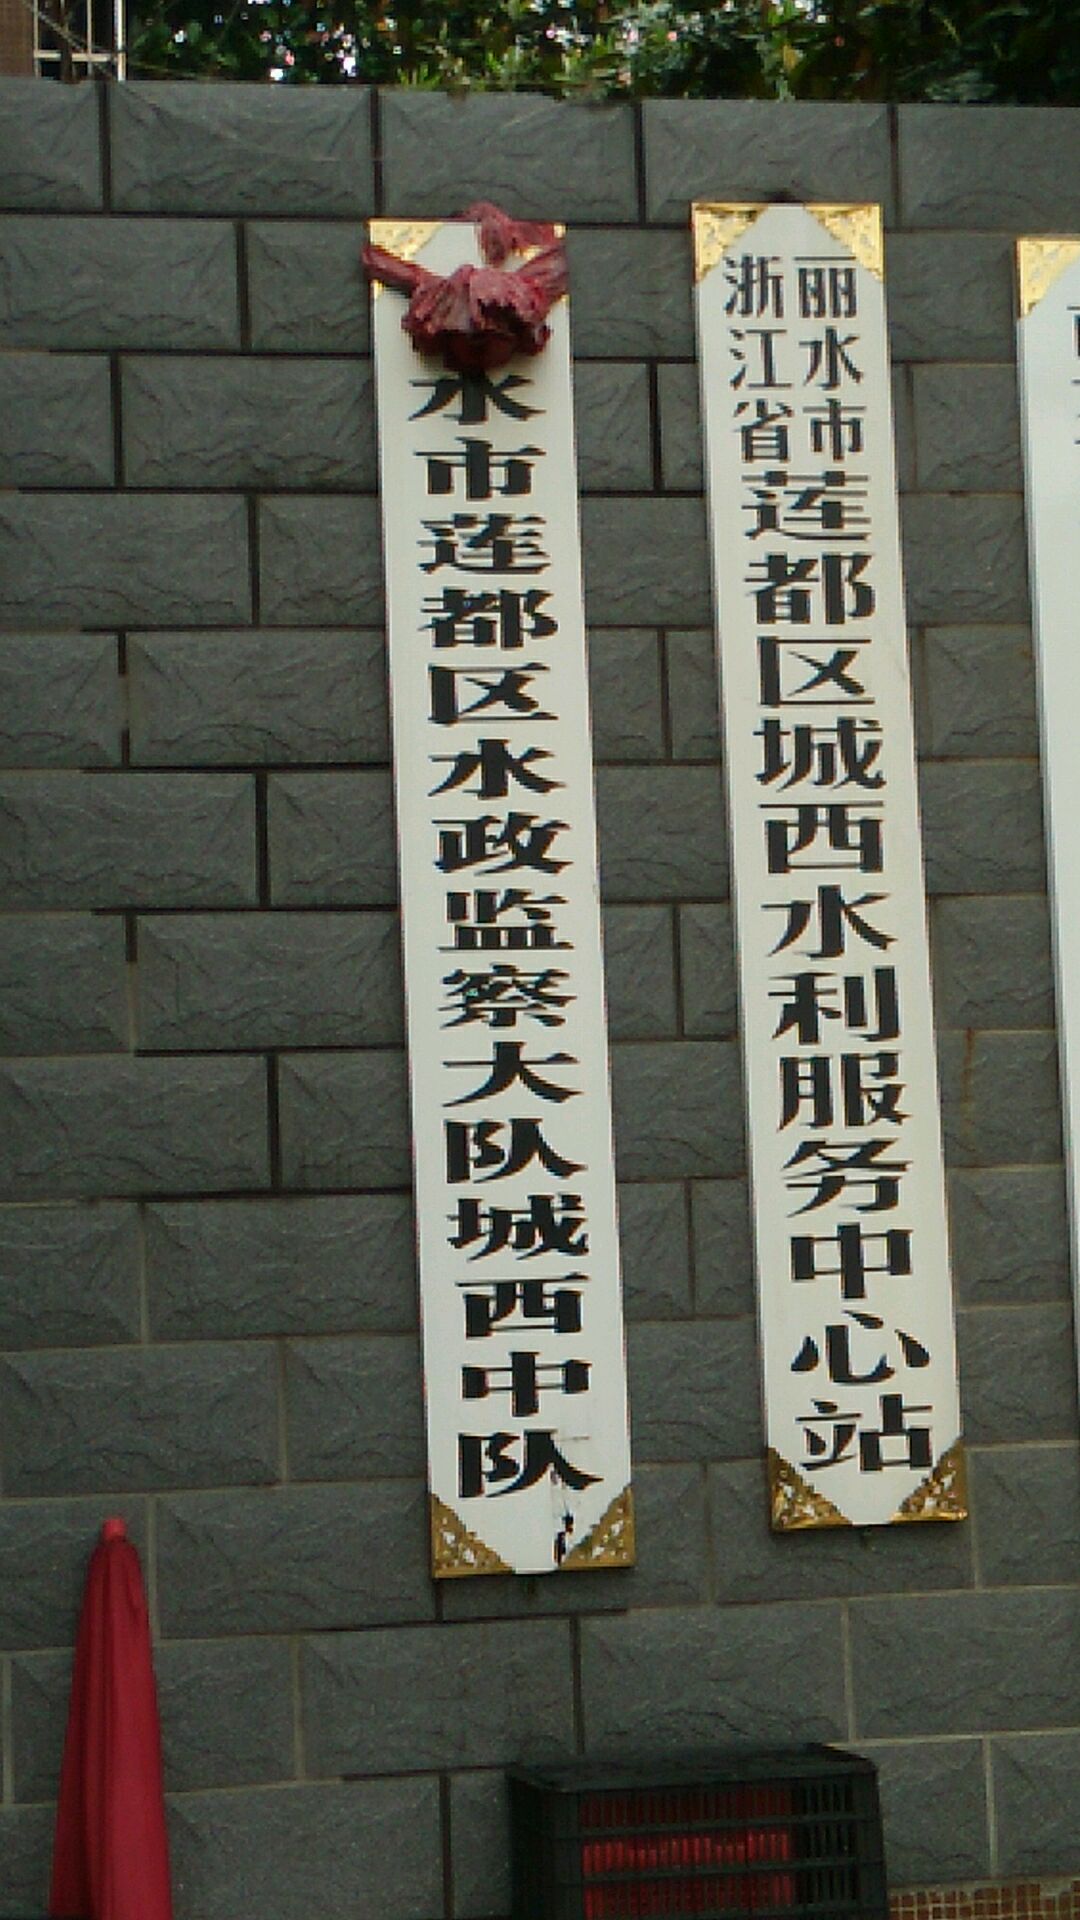 水市莲都区水政监察大队城西中队
浙江省
丽水市
莲都区城西水利服务中心站